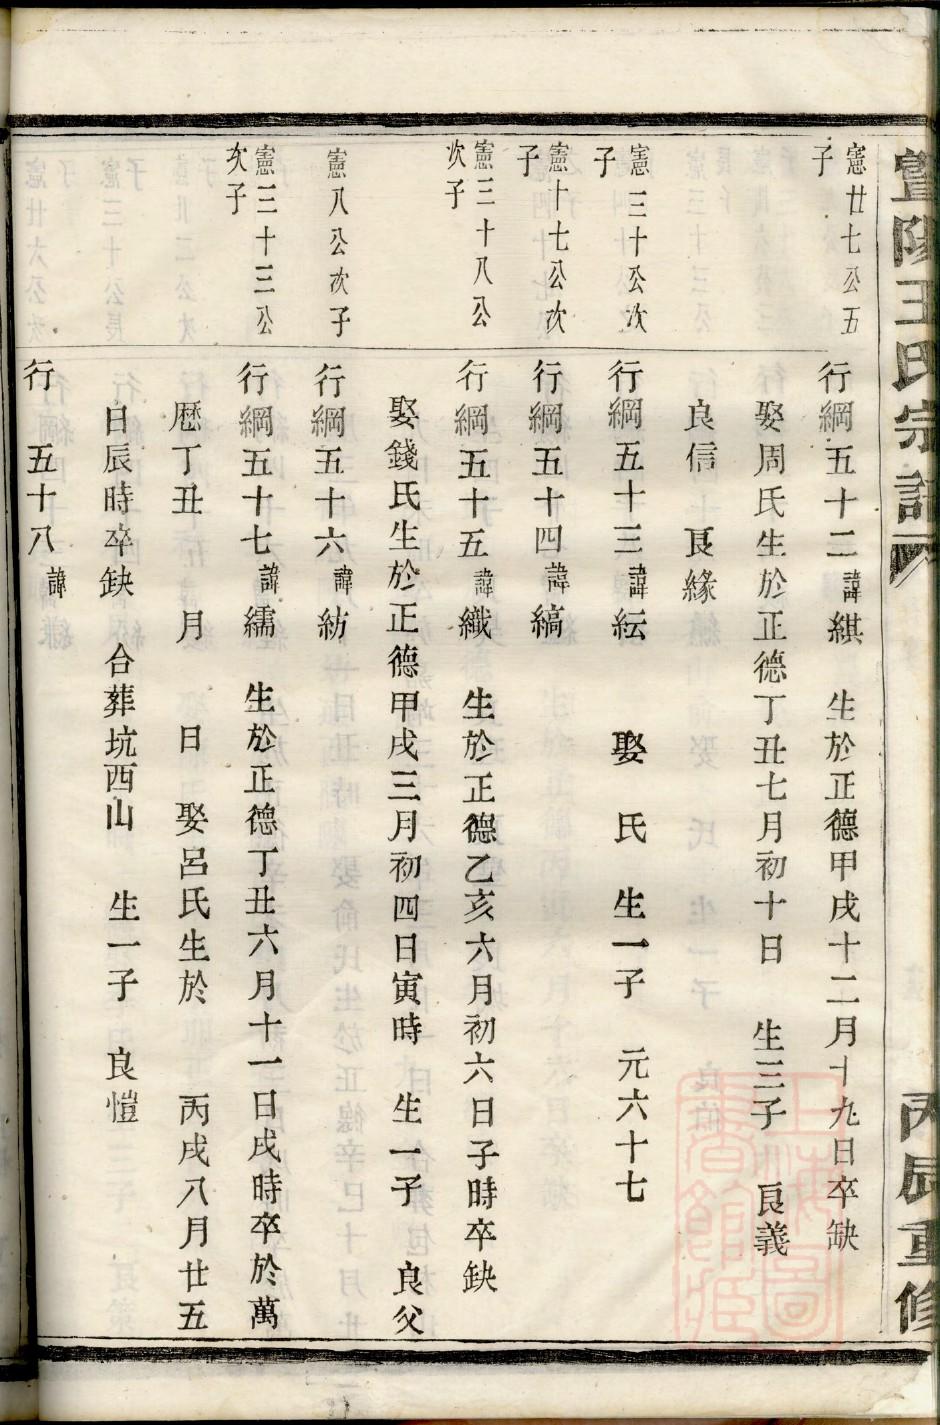 暨陽王氏宗譜
丙辰重修
憲廿七公五
子
行綱五十二諱綨 生於正德甲戌十二月十九日卒缺
娶周氏生於正德丁丑七月初十日 生三子 良義
良信 良緣
憲三十公次
子
行綱五十三諱紜 娶 氏 生一子 元六十七
憲十七公次
子
行綱五十四諱縞
憲三十八公
次子
行綱五十五諱織 生於正德乙亥六月初六日子時卒缺
娶錢氏生於正德甲戌三月初四日寅時 生一子 良父
憲八公次子
行綱五十六諱紡
憲三十三公
次子
行綱五十七諱繻 生於正德丁丑六月十一日戌時卒於萬
厯丁丑 月 日 娶呂氏生於 丙戌八月廿五
日辰時卒缺 合葬坑西山 生一子 良愷
行 五十八 諱